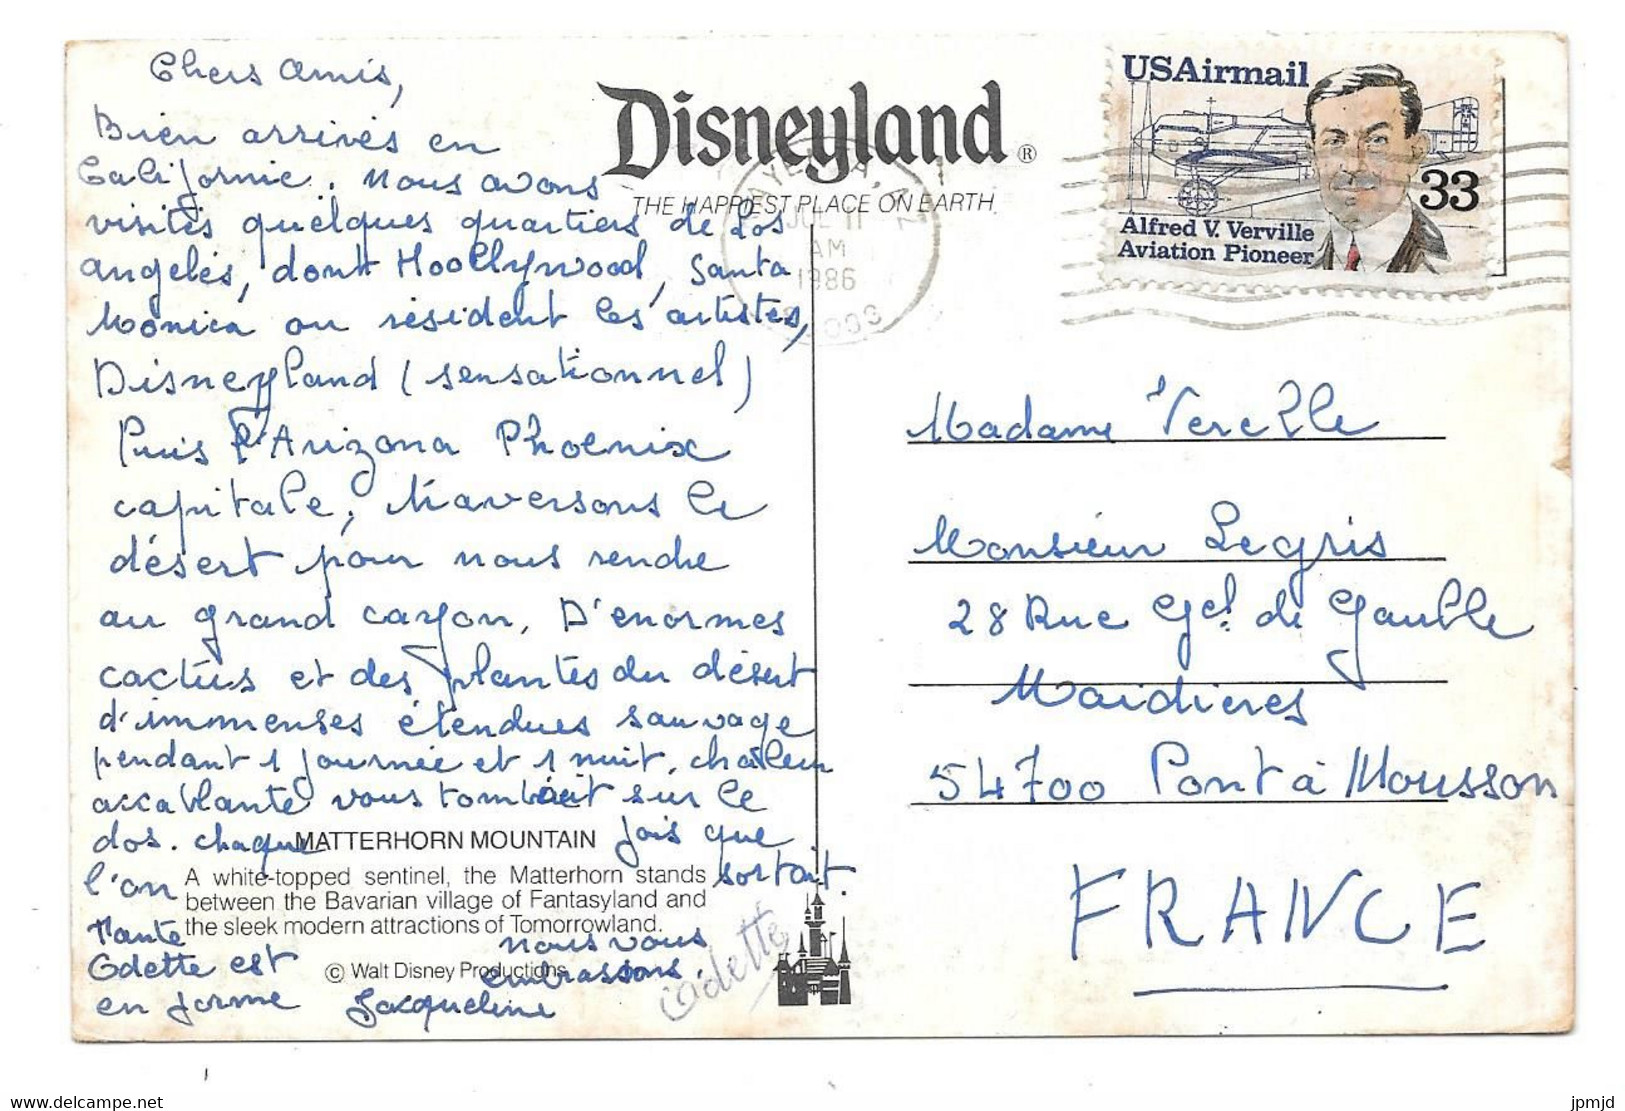 Chers Amis,
Bien arrivés en
Californie. Nous avons
visités quelques quartiers de Los
angelès, dont Hoollywood, Santa
Monica ou résident les artistes,
Disneyland (sensationnel)
Puis l'Arizona Phoenix
capitale, traversons le
désert pour nous rendre
au grand cayon. D'énormes
cactus et des plantes du désert
d'immenses étendues sauvage
pendant 1 journée et 1 nuit. chaleur
accablante vous tombait sur le
dos. chaque fois que
l'on sortait.
Tante
Odette est
en forme
nous vous
embrassons.
Jacqueline
Odette
MATTERHORN MOUNTAIN
A white-topped sentinel, the Matterhorn stands
between the Bavarian village of Fantasyland and
the sleek modern attractions of Tomorrowland.
© Walt Disney Productions
Disneyland®
THE HAPPIEST PLACE ON EARTH
JUL 11
AM
1986
USAirmail
33
Alfred V. Verville
Aviation Pioneer
Madame Verelle
Monsieur Legris
28 Rue Gel de Gaulle
Maidieres
54700 Pont à Mousson
FRANCE
www.delcampe.net
jpmjd